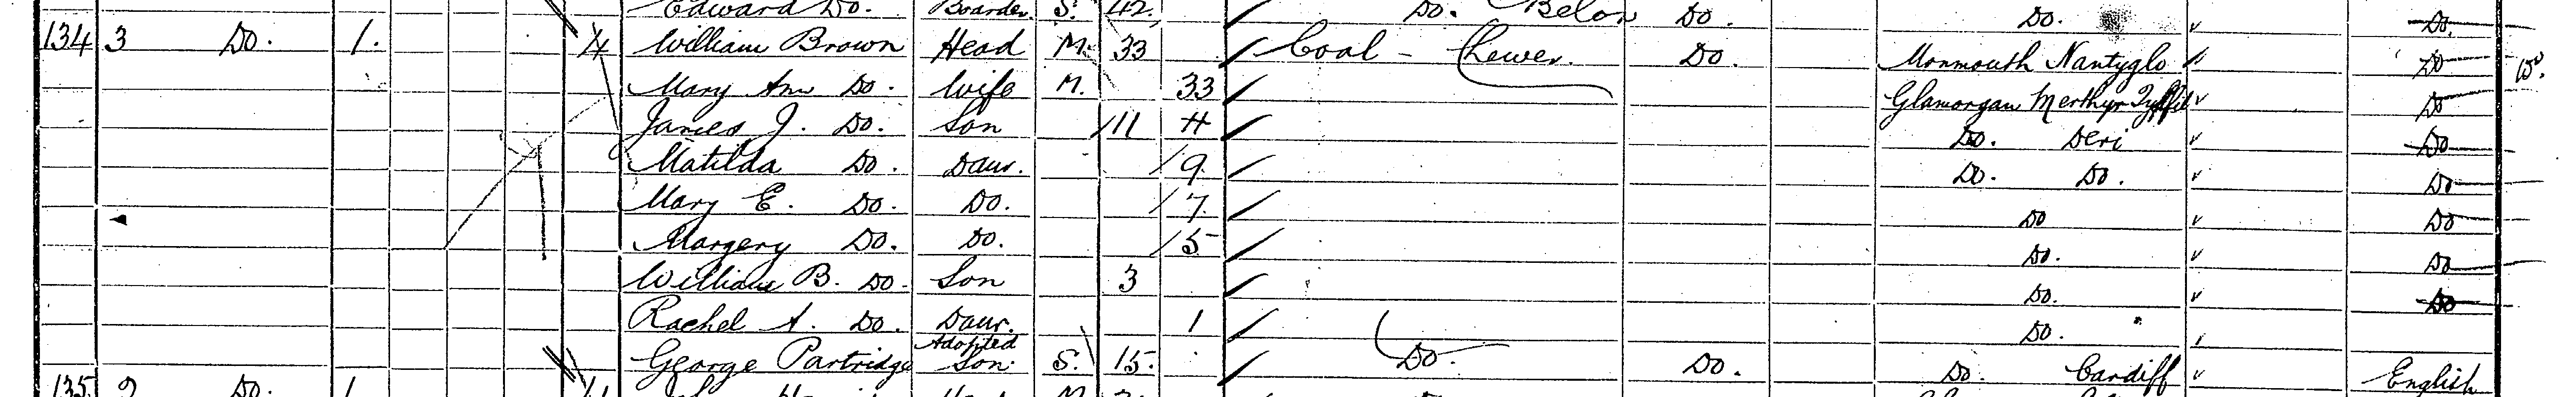 Edward Do. Boarder S. 42 Do. Below Do. Do. Do.
134 3 Do. 1. 4 William Brown Head M. 33 Coal - Hewer. Do. Monmouth Nantyglo Do
Mary Ann Do. Wife M. 33 Glamorgan Merthyr Tydfil Do
James J. Do. Son 11 Do. Deri Do
Matilda Do. Daur. 9 Do. Do. Do
Mary E. Do. Do. 7 Do Do
Margery Do. Do. 5 Do. Do
William B. Do. Son 3 Do. Do
Rachel A. Do. Daur. 1 Do.
George Partridge Adopted Son. S. 15. Do. Do. Do. Cardiff English
135 2 Do. 1